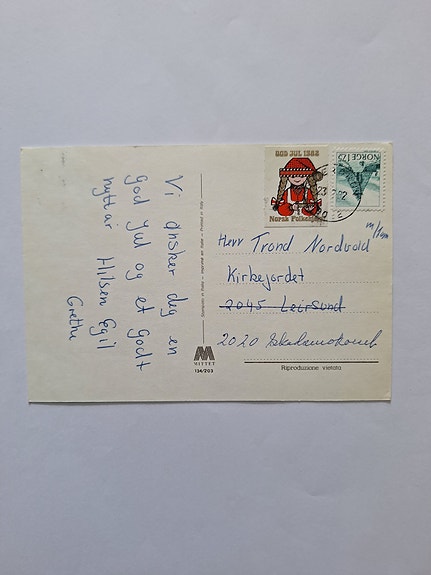 Vi ønsker dig en
God Jul og et godt
nytt år Hilsen Egil
Grethe
Stampato in Italy - Imprimé en Italie - Printed in Italy
MITTET
134/203
GOD JUL 1982
Norsk Folkehjelp
NORGE 175
m/fam
Herr Trond Nordvold
Kirkejordet
2045 Leirsund
2020 Skedsmokorset
Riproduzione vietata